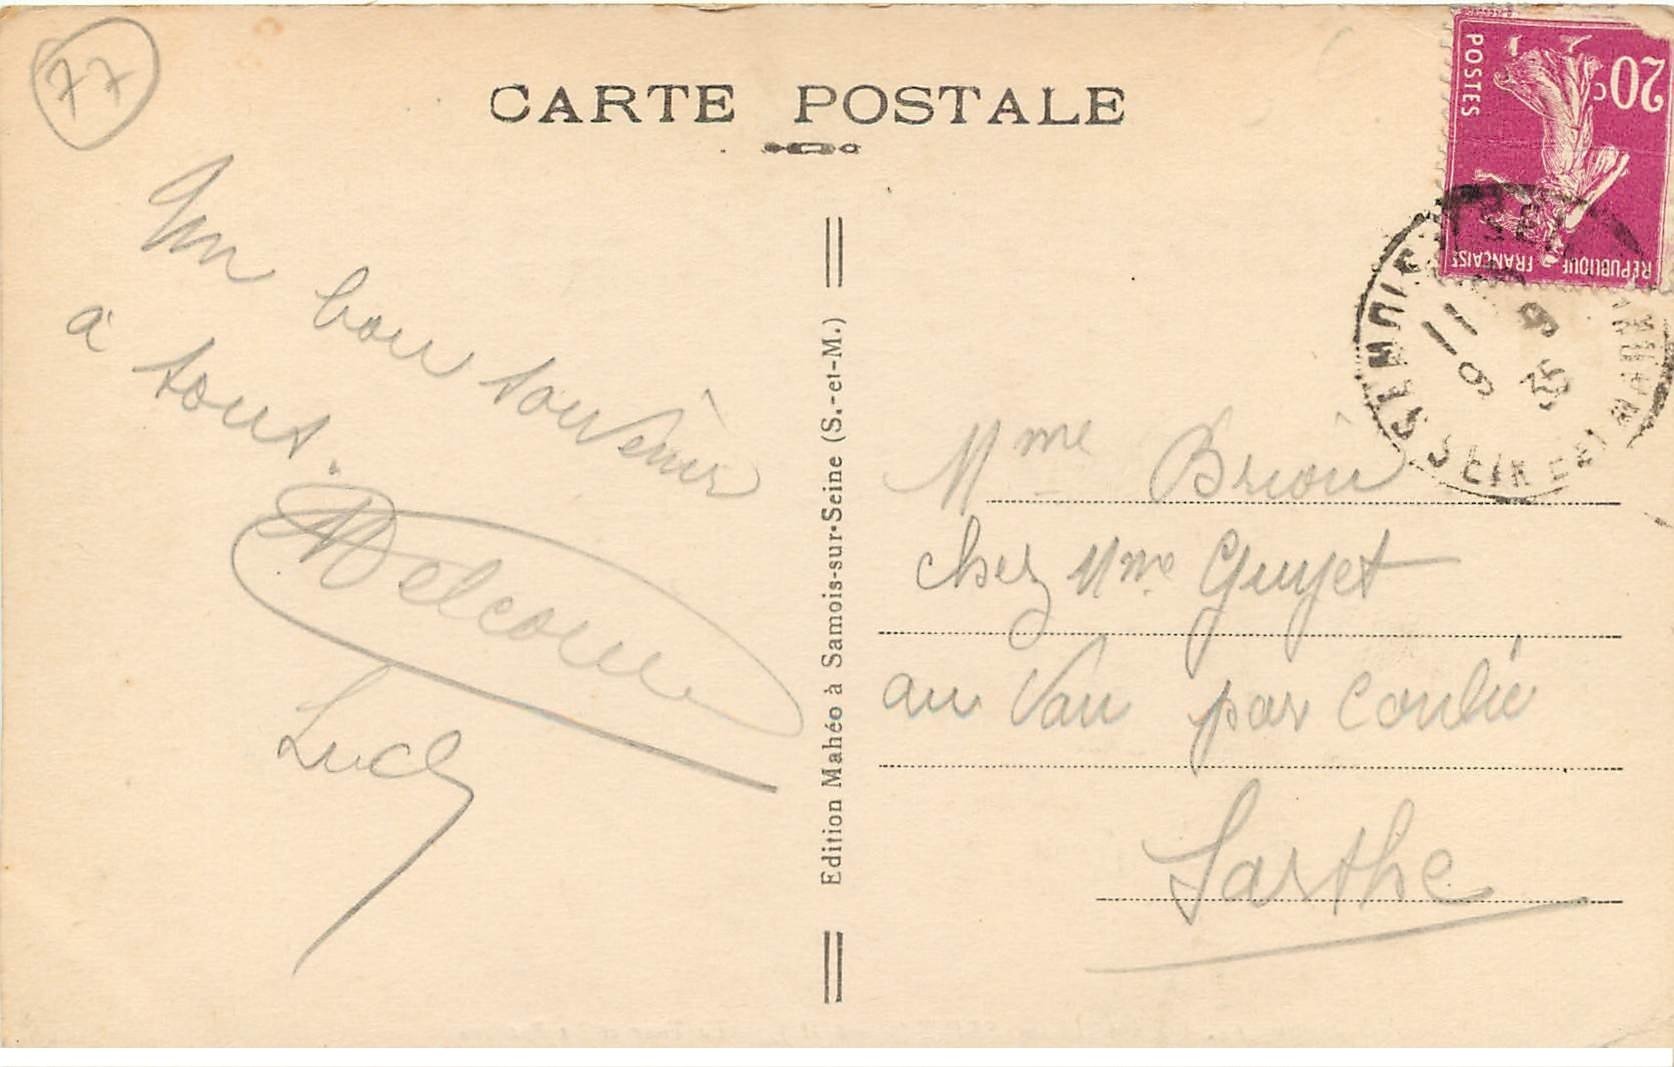 77
CARTE POSTALE
Un bon souvenir
à tous.
Delcour
Lucy
Edition Mahéo à Samois-sur-Seine (S.-et-M.)
20c
POSTES
REPUBLIQUE FRANÇAISE
SAMOIS S SEINE
11
9 9
35
SEINE ET MARNE
Mme Brion
chez Mme Guyet
au Vau par Conlie
Sarthe